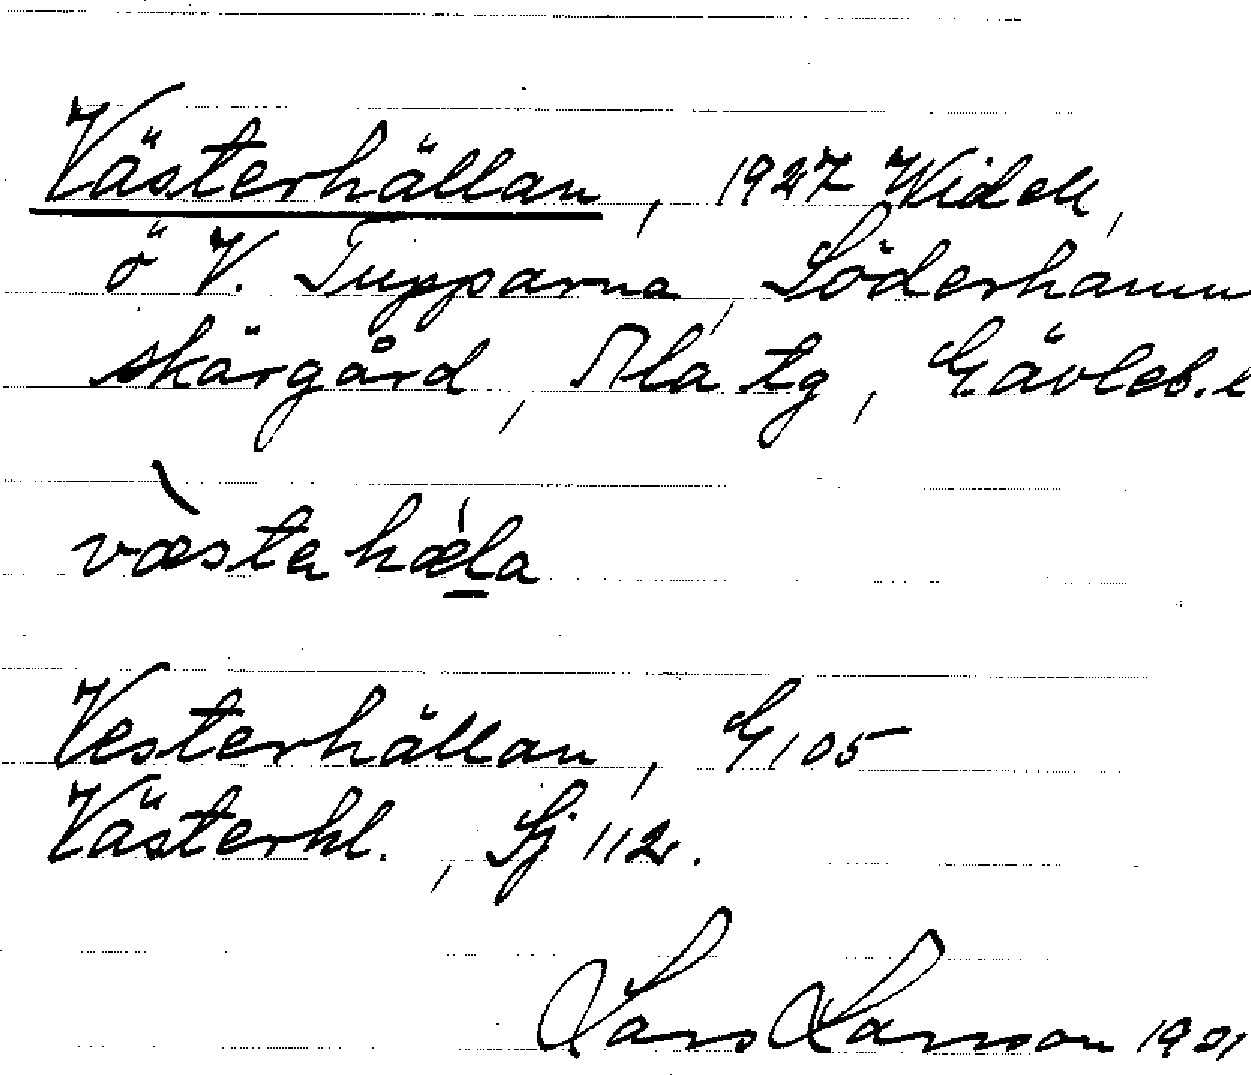 Västerhällan, 1927 Widell,
ö V. Tupparna, Söderhamn
skärgård, Ala tg, Gävleb. l
væsta hæla
Vesterhällan, G 105
Västerhl., Sj 112.
Lars Larsson